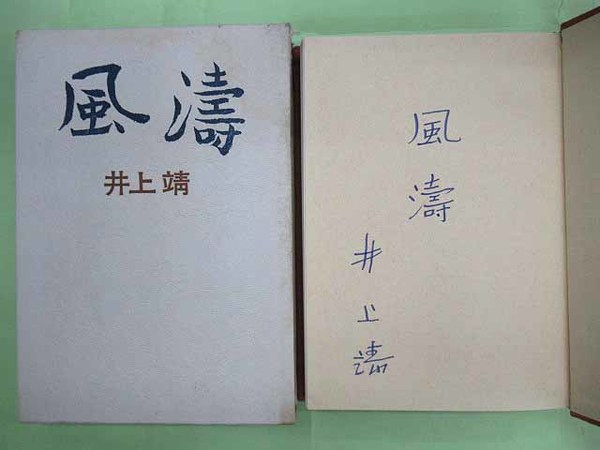 風濤
井上靖
風濤
井上靖